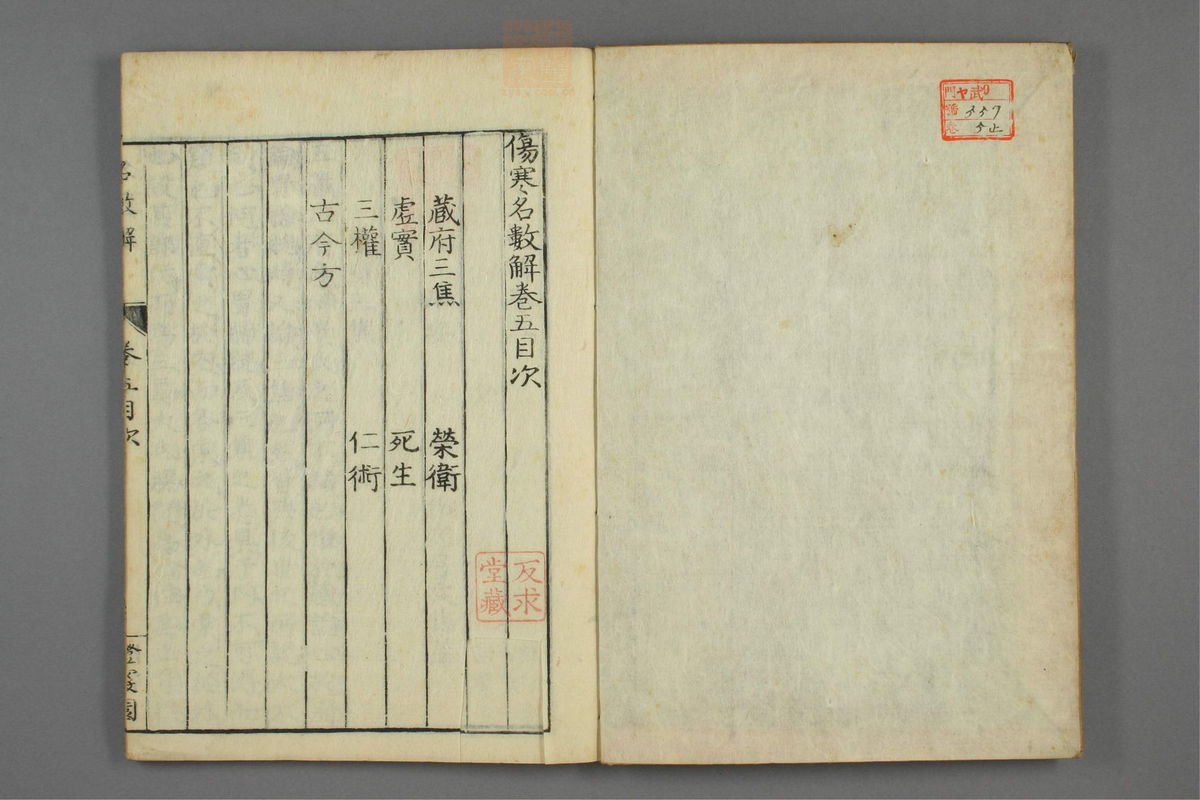 門 ヤ武9
番 557
卷
傷寒名數解卷五目次
蔵府三焦 榮衛
虛實 死生
三權 仁術
古今方
反求
堂藏
名數解 卷五目次